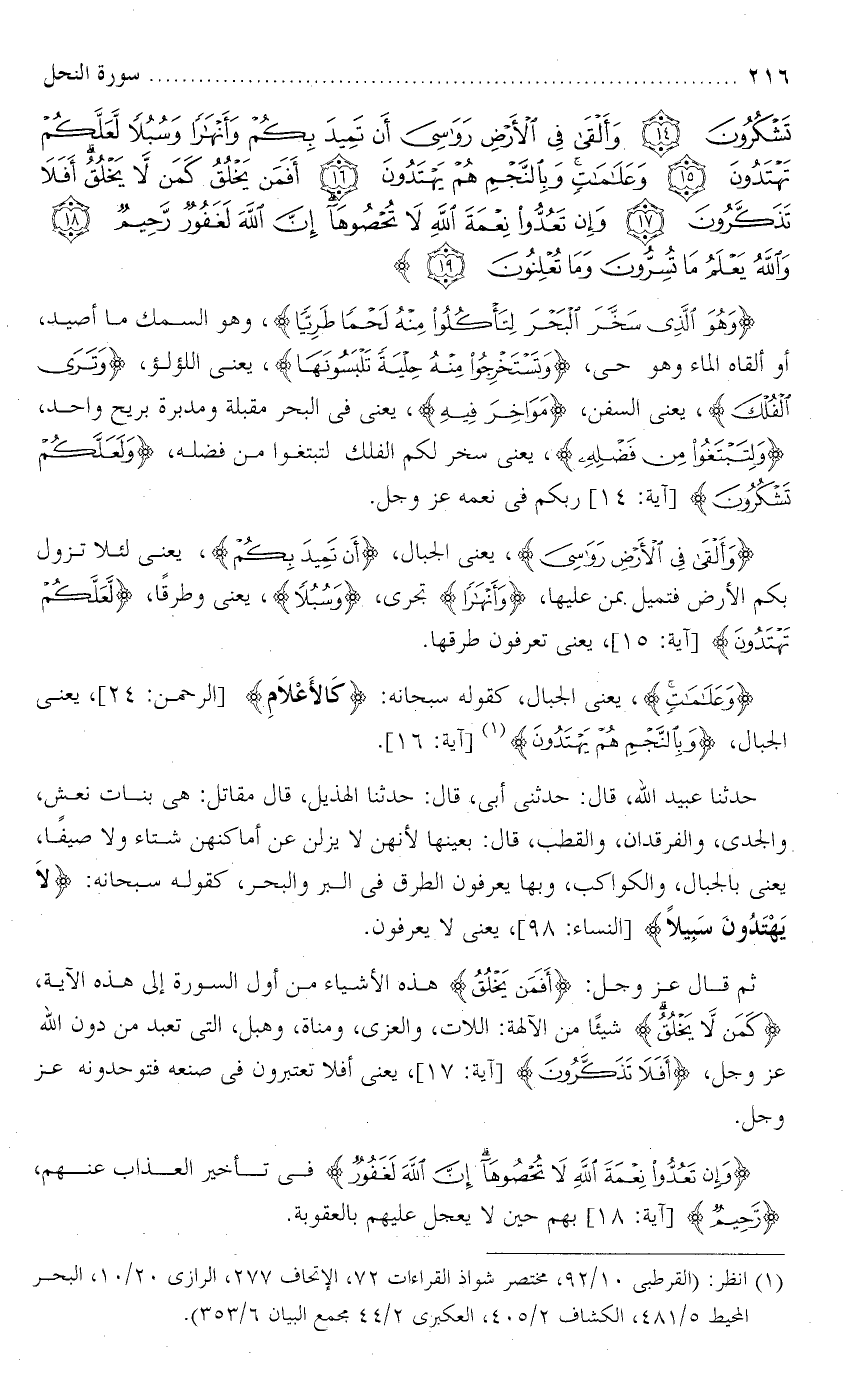 ٢١٦ ........................................................................ سورة النحل
تَشْكُرُونَ ﴿١٤﴾ وَأَلْقَىٰ فِي الْأَرْضِ رَوَاسِيَ أَن تَمِيدَ بِكُمْ وَأَنْهَارًا وَسُبُلًا لَّعَلَّكُمْ
تَهْتَدُونَ ﴿١٥﴾ وَعَلَامَاتٍ ۚ وَبِالنَّجْمِ هُمْ يَهْتَدُونَ ﴿١٦﴾ أَفَمَن يَخْلُقُ كَمَن لَّا يَخْلُقُ ۗ أَفَلَا
تَذَكَّرُونَ ﴿١٧﴾ وَإِن تَعُدُّوا نِعْمَةَ اللَّهِ لَا تُحْصُوهَا ۗ إِنَّ اللَّهَ لَغَفُورٌ رَّحِيمٌ ﴿١٨﴾
وَاللَّهُ يَعْلَمُ مَا تُسِرُّونَ وَمَا تُعْلِنُونَ ﴿١٩﴾ ﴾
﴿وَهُوَ الَّذِي سَخَّرَ الْبَحْرَ لِتَأْكُلُوا مِنْهُ لَحْمًا طَرِيًّا﴾، وهو السمك ما أصيد،
أو ألقاه الماء وهو حى، ﴿وَتَسْتَخْرِجُوا مِنْهُ حِلْيَةً تَلْبَسُونَهَا﴾، يعنى اللؤلؤ، ﴿وَتَرَى
الْفُلْكَ﴾، يعنى السفن، ﴿مَوَاخِرَ فِيهِ﴾، يعنى فى البحر مقبلة ومدبرة بريح واحد،
﴿وَلِتَبْتَغُوا مِن فَضْلِهِ﴾، يعنى سخر لكم الفلك لتبتغوا من فضله، ﴿وَلَعَلَّكُمْ
تَشْكُرُونَ﴾ [آية: ١٤] ربكم فى نعمه عز وجل.
﴿وَأَلْقَىٰ فِي الْأَرْضِ رَوَاسِيَ﴾، يعنى الجبال، ﴿أَن تَمِيدَ بِكُمْ﴾، يعنى لئلا تزول
بكم الأرض فتميل بمن عليها، ﴿وَأَنْهَارًا﴾ تجرى، ﴿وَسُبُلًا﴾، يعنى وطرقًا، ﴿لَّعَلَّكُمْ
تَهْتَدُونَ﴾ [آية: ١٥]، يعنى تعرفون طرقها.
﴿وَعَلَامَاتٍ ۚ﴾، يعنى الجبال، كقوله سبحانه: ﴿كَالأَعْلاَمِ﴾ [الرحمن: ٢٤]، يعنى
الجبال، ﴿وَبِالنَّجْمِ هُمْ يَهْتَدُونَ﴾(١) [آية: ١٦].
حدثنا عبيد الله، قال: حدثنى أبى، قال: حدثنا الهذيل، قال مقاتل: هى بنات نعش،
والجدى، والفرقدان، والقطب، قال: بعينها لأنهن لا يزلن عن أماكنهن شتاء ولا صيفًا،
يعنى بالجبال، والكواكب، وبها يعرفون الطرق فى البر والبحر، كقوله سبحانه: ﴿لاَ
يَهْتَدُونَ سَبِيلاً﴾ [النساء: ٩٨]، يعنى لا يعرفون.
ثم قال عز وجل: ﴿أَفَمَن يَخْلُقُ﴾ هذه الأشياء من أول السورة إلى هذه الآية،
﴿كَمَن لَّا يَخْلُقُ ۗ﴾ شيئًا من الآلهة: اللات، والعزى، ومناة، وهبل، التى تعبد من دون الله
عز وجل، ﴿أَفَلَا تَذَكَّرُونَ﴾ [آية: ١٧]، يعنى أفلا تعتبرون فى صنعه فتوحدونه عز
وجل.
﴿وَإِن تَعُدُّوا نِعْمَةَ اللَّهِ لَا تُحْصُوهَا ۗ إِنَّ اللَّهَ لَغَفُورٌ﴾ فى تأخير العذاب عنهم،
﴿رَّحِيمٌ﴾ [آية: ١٨] بهم حين لا يعجل عليهم بالعقوبة.
(١) انظر: (القرطبى ٩٢/١٠، مختصر شواذ القراءات ٧٢، الإتحاف ٢٧٧، الرازى ١٠/٢٠، البحر
المحيط ٤٨١/٥، الكشاف ٤٠٥/٢، العكبرى ٤٤/٢ مجمع البيان ٣٥٣/٦).